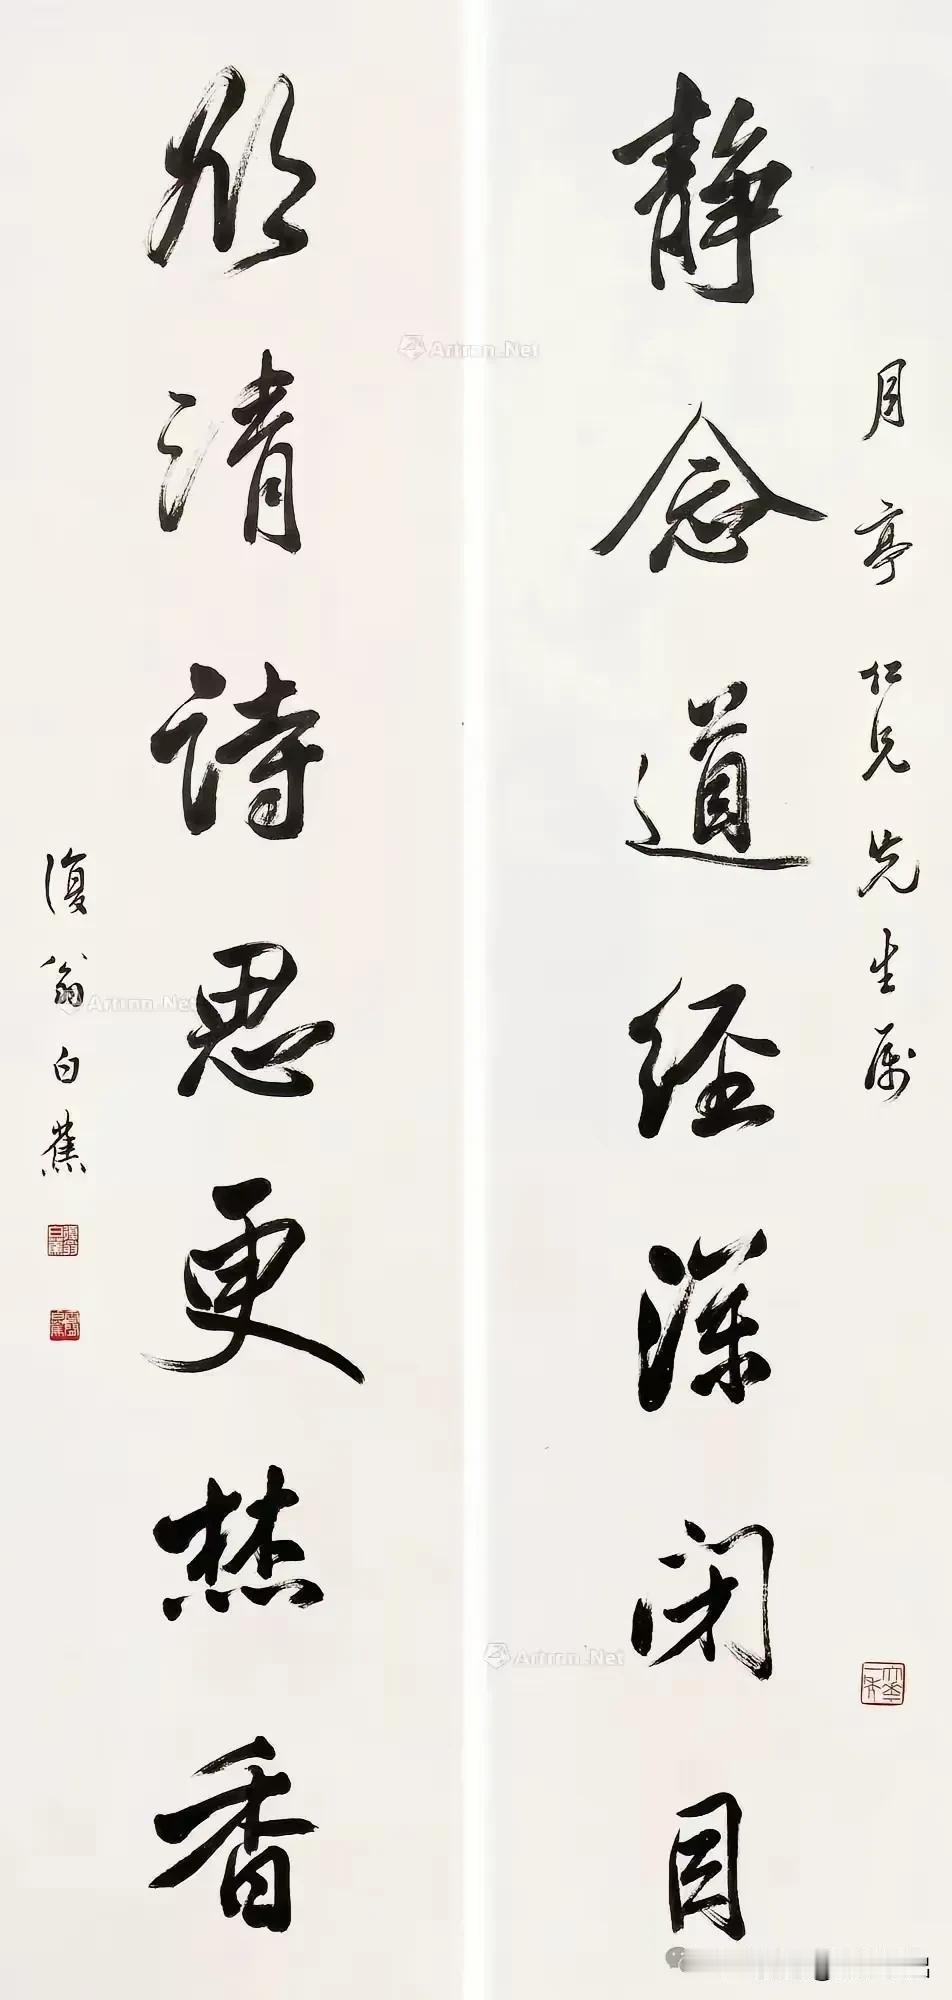 月亭仁兄先生属
静念道经深闭目
欲清诗思更焚香
復翁白蕉
Artron.Net
Artron.Net
Artron.Net